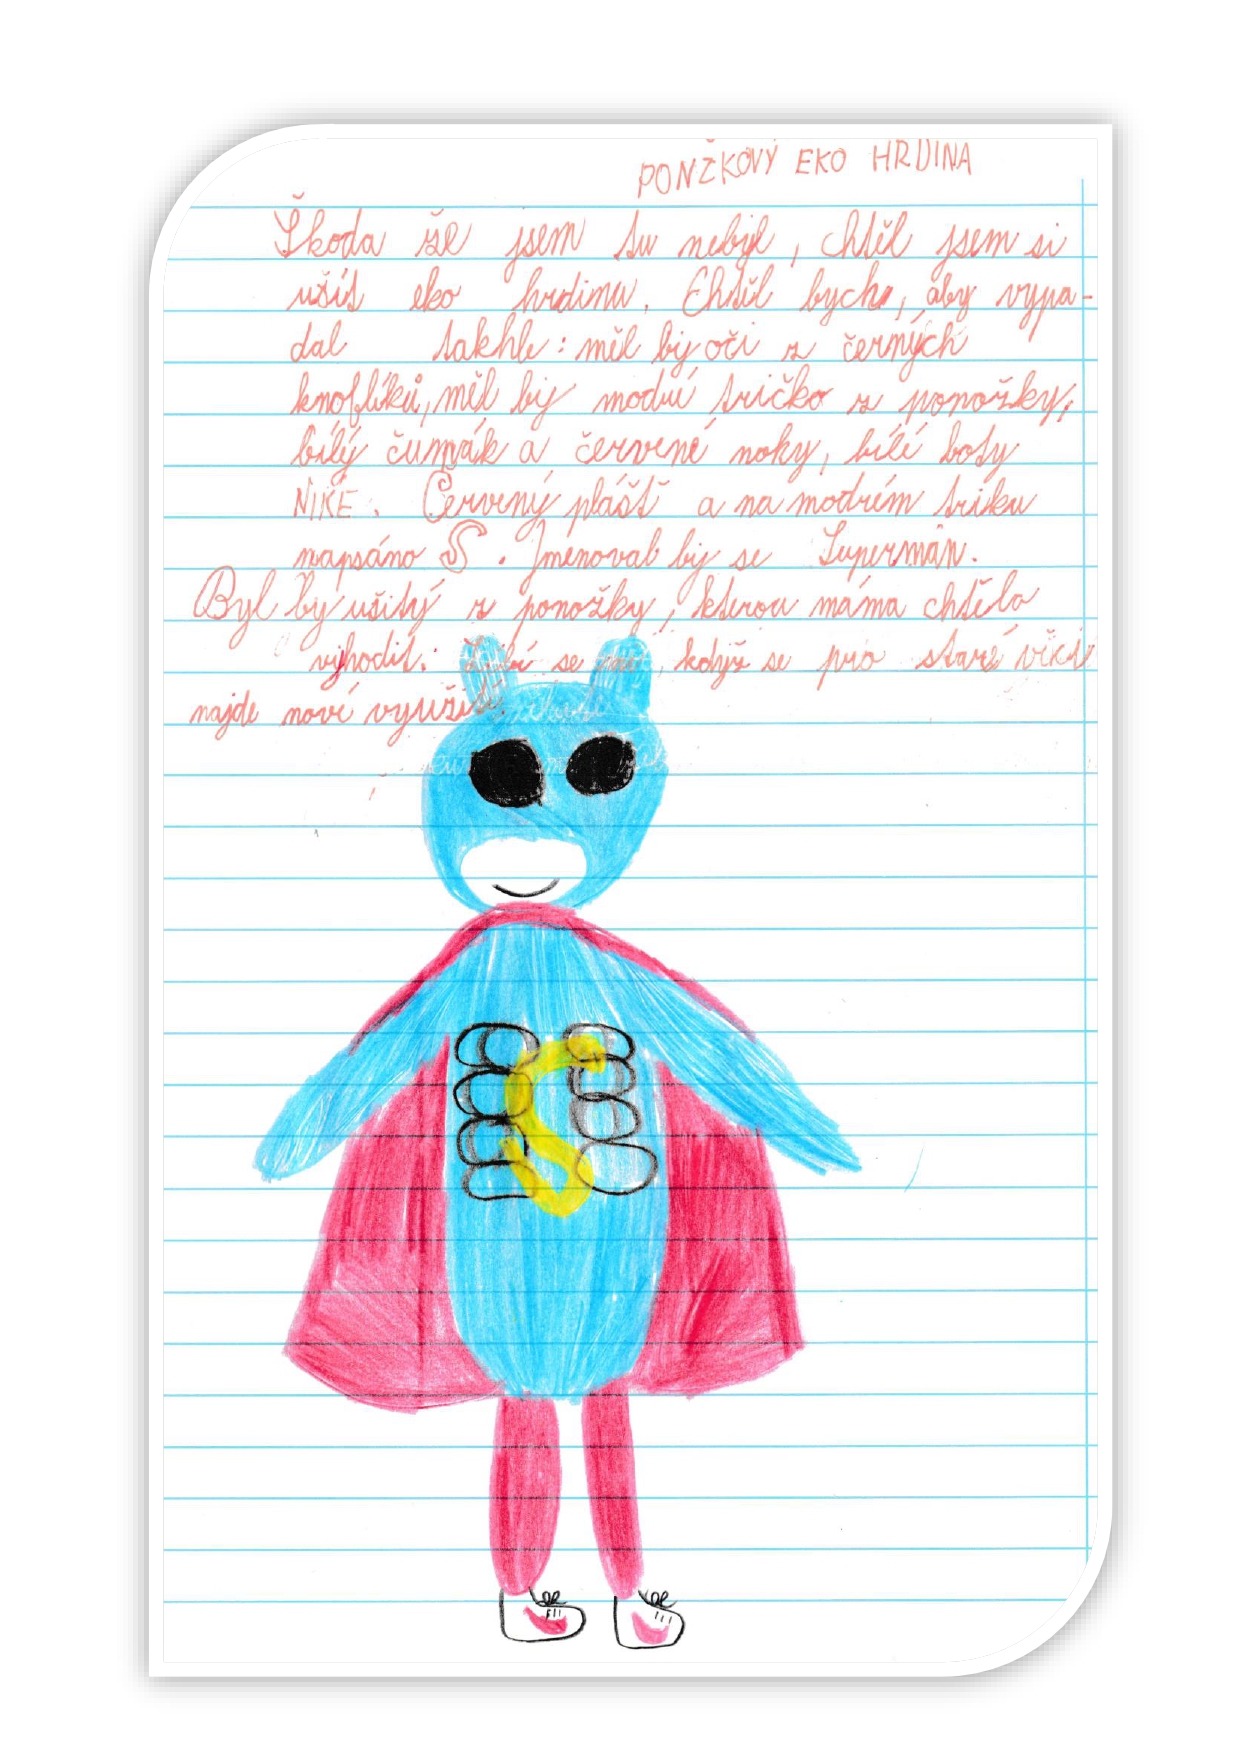 PONŽKOVÝ EKO HRDINA
Škoda že jsem tu nebyl, chtěl jsem si
ušít eko hrdinu. Chtěl bych, aby vypa-
dal takhle: měl by oči z černých
knoflíků, měl by modré tričko z ponožky,
bílý čumák a červené nohy, bílé boty
NIKE. Červený plášť a na modrém triku
napsáno S. Jmenoval by se Supermän.
Byl by ušitý z ponožky, kterou máma chtěla
vyhodit. Líbí se mi, když se pro staré věci
najde nové využití.
S